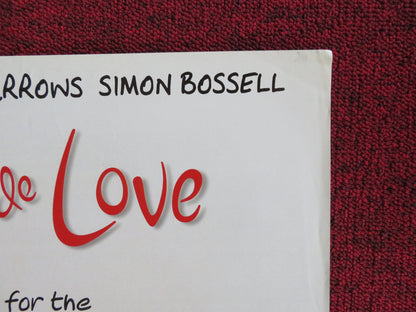 RROWS SIMON BOSSELL
le Love
for the